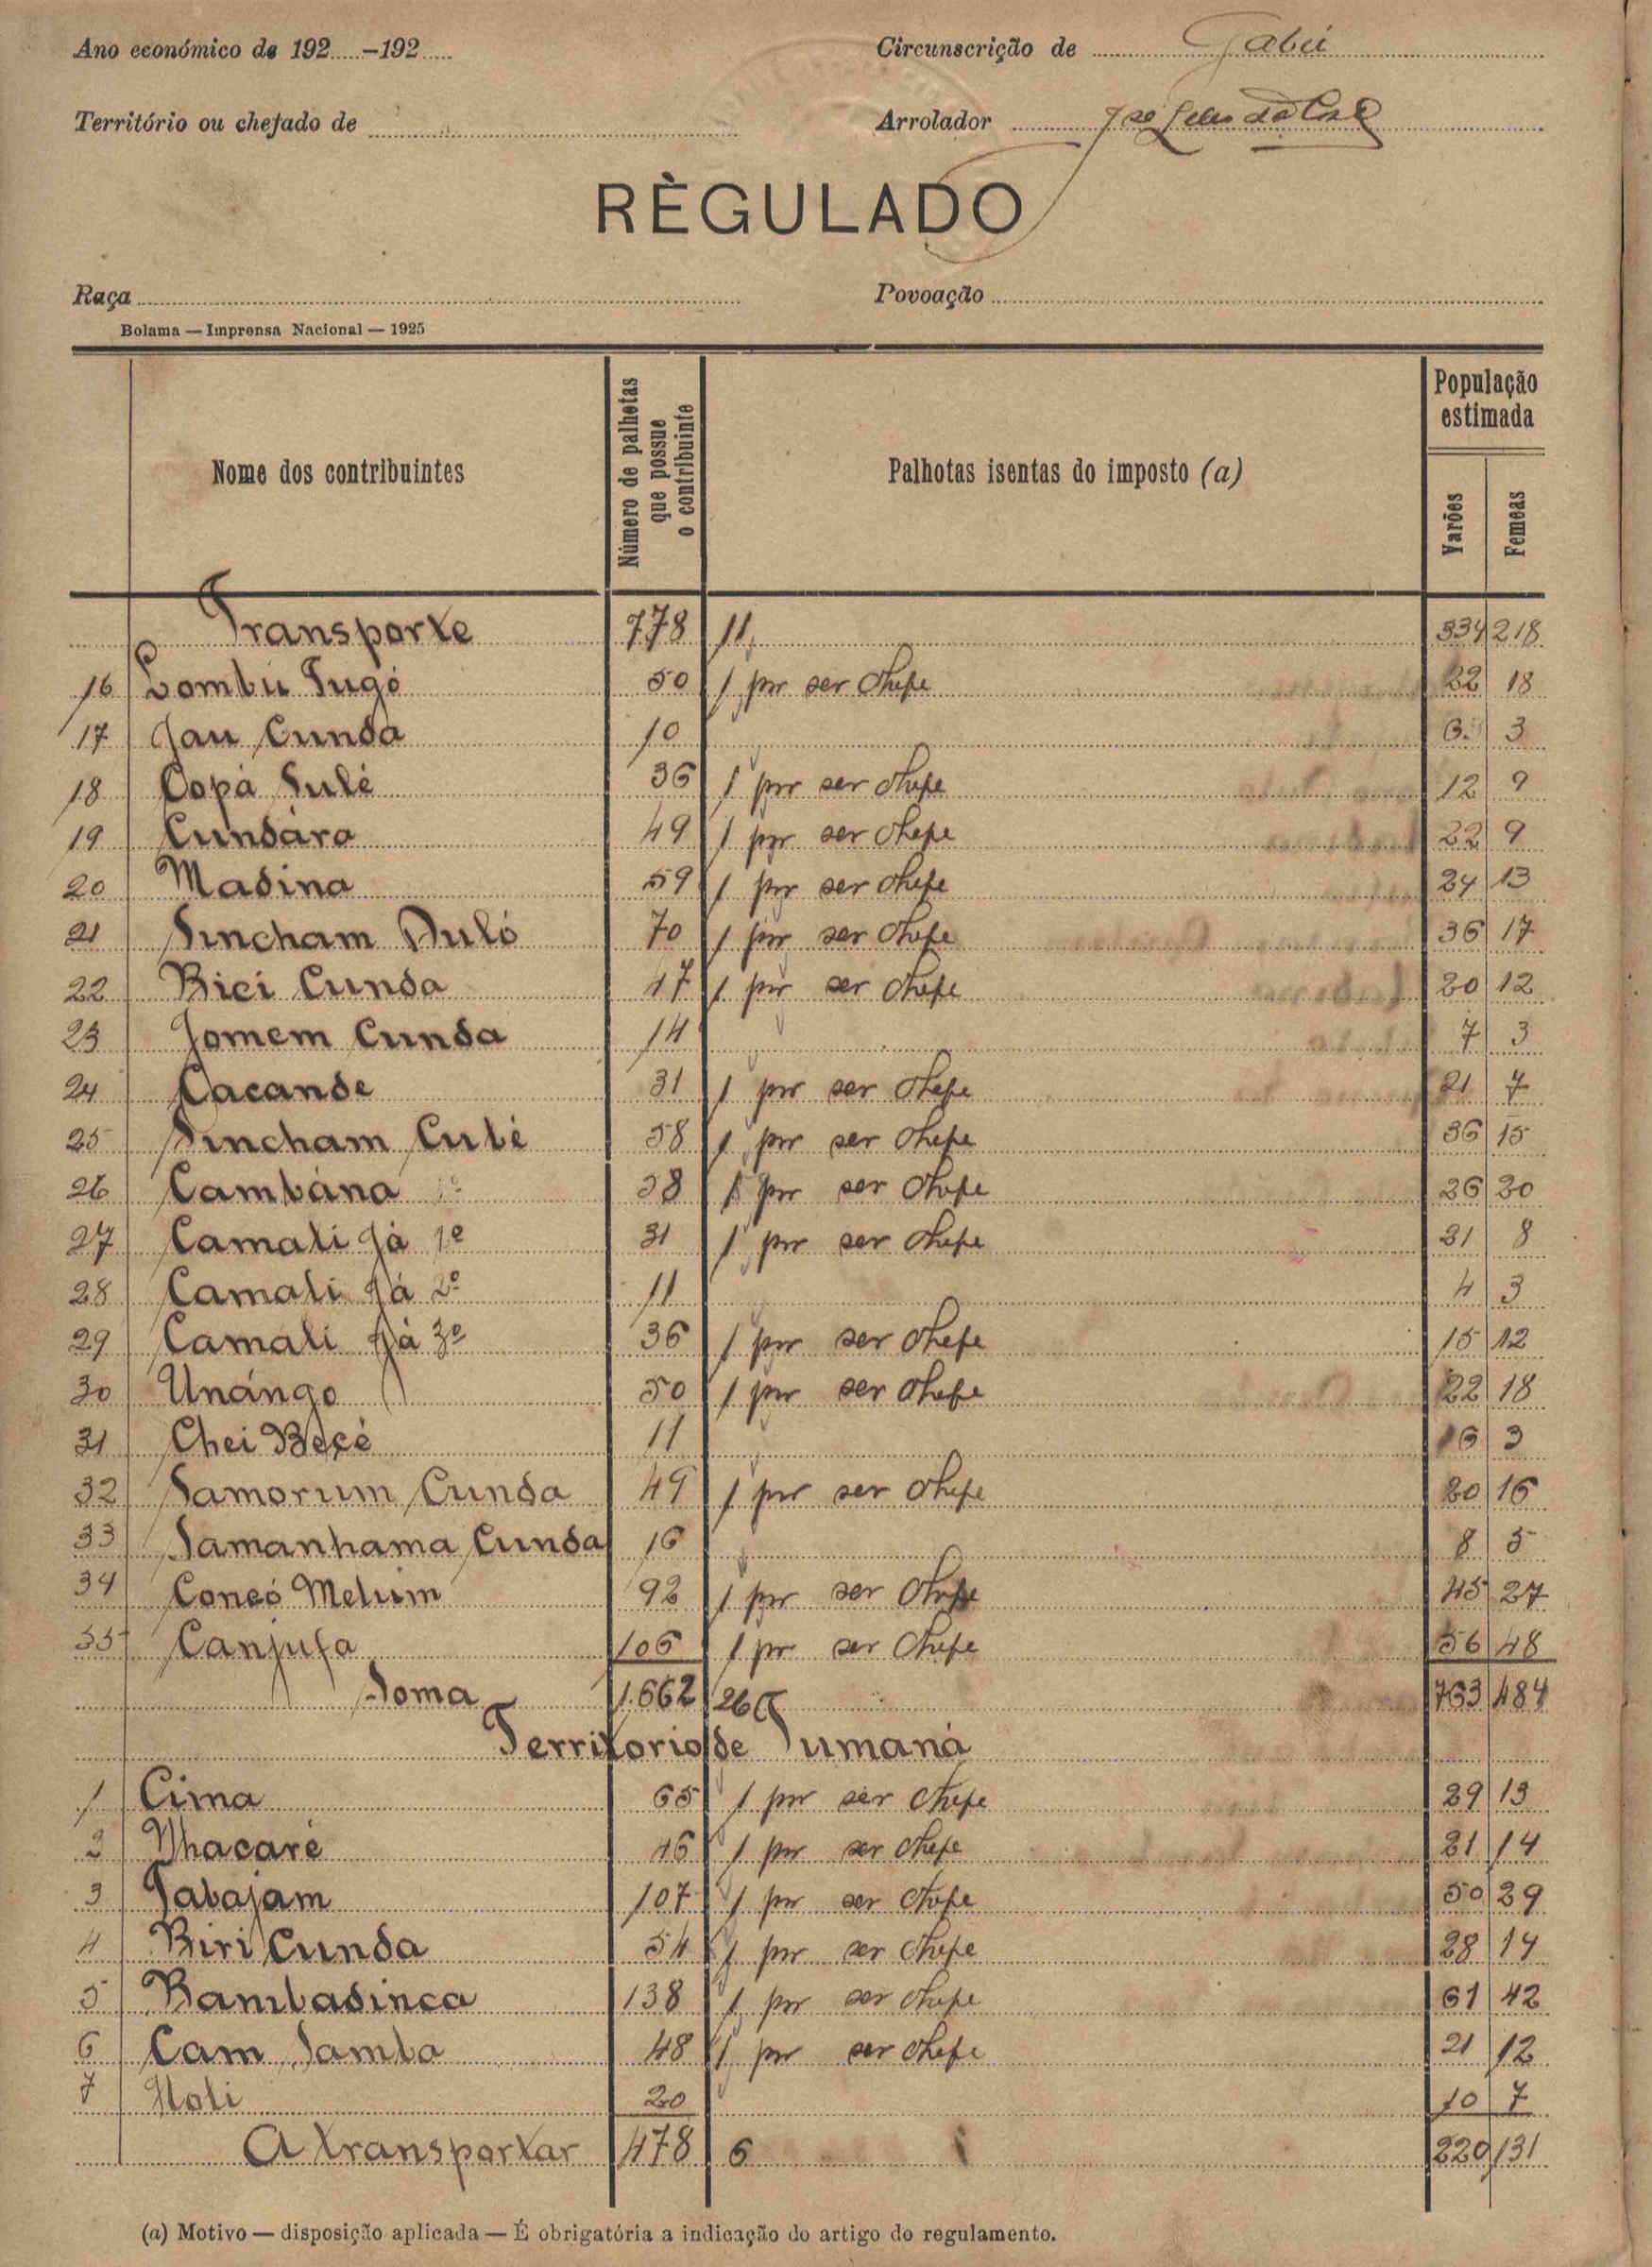 Ano económico de 192.....-192.....
Circunscrição de Gabú
Território ou chefado de
Arrolador
RÈGULADO
Raça
Povoação
Bolama — Imprensa Nacional — 1925
Nome dos contribuintes
Número de palhotas que possue o contribuinte
Palhotas isentas do imposto (a)
População estimada
Varões
Femeas
Transporte 778 11 334 218
16 Lombu Tugó 50 1 por ser chefe 22 18
17 Jau Cunda 10 6 3
18 Copá Sulé 36 1 por ser chefe 12 9
19 Cundára 49 1 por ser chefe 22 9
20 Madina 59 1 por ser chefe 24 13
21 Sincham Duló 70 1 por ser chefe 36 17
22 Bici Cunda 47 1 por ser chefe 20 12
23 Jomem Cunda 14 7 3
24 Cacande 31 1 por ser chefe 21 7
25 Sincham Culé 58 1 por ser chefe 36 15
26 Cambána 38 1 por ser chefe 26 20
27 Camali Já 1º 31 1 por ser chefe 21 8
28 Camali Já 2º 11 4 3
29 Camali Já 3º 36 1 por ser chefe 15 12
30 Unángo 50 1 por ser chefe 22 18
31 Chei Beçé 11 6 3
32 Samorum Cunda 49 1 por ser chefe 20 16
33 Samanhama Cunda 16 8 5
34 Coneó Melum 92 1 por ser chefe 45 27
35 Canjufa 106 1 por ser chefe 56 48
Soma 1.662 26 763 484
Territorio de Tumaná
1 Cima 65 1 por ser chefe 29 13
2 Nhacaré 46 1 por ser chefe 21 14
3 Tabajam 107 1 por ser chefe 50 29
4 Biri Cunda 54 1 por ser chefe 28 14
5 Bambadinca 138 1 por ser chefe 61 42
6 Cam Samba 48 1 por ser chefe 21 12
7 Holi 20 10 7
A transportar 478 6 220 131
(a) Motivo — disposição aplicada — É obrigatória a indicação do artigo do regulamento.